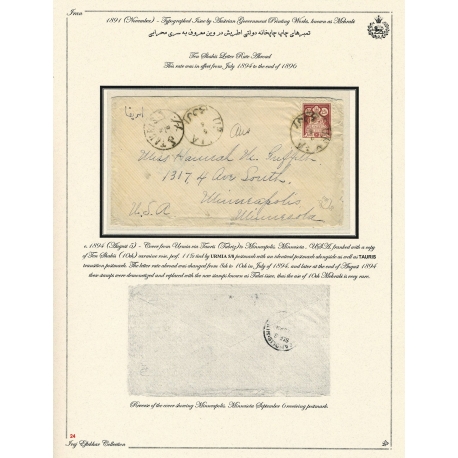 Iran
1891 (November) - Typographed Issue by Austrian Government Printing Works, known as Mehrabi
تمبرهای چاپ چاپخانه دولتی اطریش در وین معروف به سری محرابی
Ten Shahis Letter Rate Abroad
This rate was in effect from July 1894 to the end of 1896
Via
Miss Hannah M.
1317, 4 Ave South.
Minneapolis
U.S.A. Minnesota
c. 1894 (August 5) - Cover from Urmia via Tauris (Tabriz) to Minneapolis, Minnesota, USA, franked with a copy
of Ten Shahis (10sh) carmine rose, perf. 11½ tied by URMIA 5/8 postmark with an identical postmark alongside as well as TAURIS
transition postmark. The letter rate abroad was changed from 8sh to 10sh in July of 1894, and later at the end of August 1894
these stamps were demonetized and replaced with the new stamps known as Talai issue, thus the use of 10sh Mehrabi is very rare.
Reverse of the cover showing Minneapolis, Minnesota September receiving postmark.
24
Iraj Eftekhar Collection